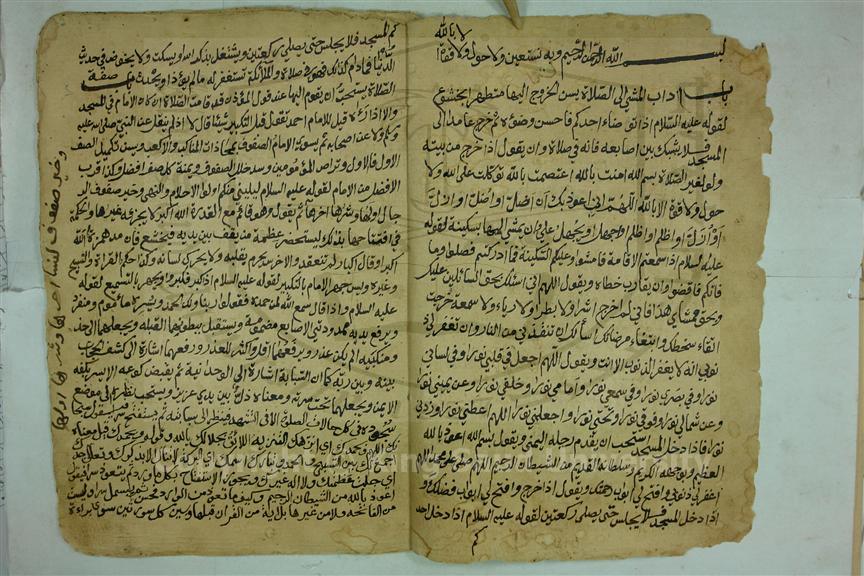 لا بالله
بسم الله الرحمن الرحيم وبه نستعين ولا حول ولا قوة الا
باب اداب المشي الى الصلاة يسن الخروج اليها متطهرا بخشوع
لقوله عليه السلام اذا توضاء احدكم فاحسن وضوءه ثم خرج عامدا الى
المسجد فلا يشبك بين اصابعه فانه في صلاة وان يقول اذا خرج من بيته
ولو لغير الصلاة بسم الله امنت بالله اعتصمت بالله توكلت على الله ولا
حول ولا قوة الا بالله اللهم اني اعوذ بك ان اضل او اضل او ازل
او ازل او اظلم او اظلم او اجهل او يجهل علي وان يمشي اليها بسكينة لقوله
عليه السلام اذا سمعتم الاقامة فامشوا وعليكم السكينة فما ادركتم فصلوا وما
فاتكم فاقضوا وان يقارب خطاه ويقول اللهم اني اسئلك بحق السائلين عليك
وبحق ممشاي هذا فاني لم اخرج اشرا ولا بطرا ولا رياء ولا سمعة خرجت
اتقاء سخطك وابتغاء مرضاتك اسألك ان تنقذني من النار وان تغفر لي
ذنوبي انه لا يغفر الذنوب الا انت ويقول اللهم اجعل في قلبي نورا وفي لساني
نورا وفي بصري نورا وفي سمعي نورا وامامي نورا وخلفي نورا وعن يميني نورا
وعن شمالي نورا وفوقي نورا وتحتي نورا واجعلني نورا اللهم اعطني نورا وزدني
نورا فاذا دخل المسجد استحب ان يقدم رجله اليمنى ويقول بسم الله اعوذ بالله
العظيم وبوجهه الكريم وسلطانه القديم من الشيطان الرجيم اللهم صل على محمد اللهم
اغفر لي ذنوبي وافتح لي ابواب رحمتك ويقول اذا خرج وافتح لي ابواب فضلك و
اذا دخل المسجد فلا يجلس حتى يصلي ركعتين لقوله عليه السلام اذا دخل احد
كم
كم المسجد فلا يجلس حتى يصلي ركعتين ويشتغل بذكر الله او يسكت ولا يخوض في حديث
الدنيا فما دام كذلك فهو في صلاة والملائكة تستغفر له ما لم يؤذ او يحدث باب صفة
الصلاة يستحب ان يقوم اليها عند قول المؤذن قد قامت الصلاة ان كان الامام في المسجد
والا اذا رءاه قيل للامام احمد تقول قبل التكبير شيئا قال لا اذ لم ينقل عن النبي صلى الله عليه
وسلم ولا عن اصحابه ثم يسوي الامام الصفوف بمحاذات المناكب والاكعب ويسن تكميل الصف
الاول فالاول وتراص المؤمومين وسد خلل الصفوف ويمنة كل صف افضل وكذا قرب
الافضل من الامام لقوله عليه السلام ليليني منكم اولوا الاحلام والنهى وخير صفوف الر
جال اولها وشرها اخرها ثم يقول وهو قائم مع القدرة الله اكبر لا يجزيه غيرها والحكمة
في افتتاحها بذلك ليستحضر عظمة من يقف بين يديه فيخشع فان مد همزة الله
اكبر او قال اكبار لم تنعقد والاخرس يحرم بقلبه ولا يحرك لسانه وكذا حكم القراءة والتسبيح
وغيره ويسن جهر الامام بالتكبير لقوله عليه السلام اذا كبر فكبروا ويجهر بالتسميع لقوله
عليه السلام واذا قال سمع الله لمن حمده فقولوا ربنا ولك الحمد ويسر مأموم ومنفرد
ويرفع يديه ممدودتي الاصابع مضمومة ويستقبل ببطونهما القبلة ويجعلهما الى حذو
ومنكبيه ان لم يكن عذر ورفعهما اشارة الى كشف الحجاب
بينه وبين ربه كما ان السبابة اشارة الى الوحدانية ثم يقبض كوعه الايسر بكفه
الايمن ويجعلهما تحت سرته ومعناه ذل بين يدي عزيز ويستحب نظره الى موضع
سجوده في كل حالات الصلوة الا في التشهد فينظر الى سبابته ثم يستفتح سرا فيقول سبحا
نك اللهم وبحمدك
اعوذ بالله من الشيطان الرجيم وكيفما تعوذ من الوارد فحسن ثم يبسمل سرا وليست
من الفاتحة ولا من غيرها بل اية من القران قبلها وبين كل سورتين سوى براءة
وخير صفوف النساء اخرها وشرها اولها